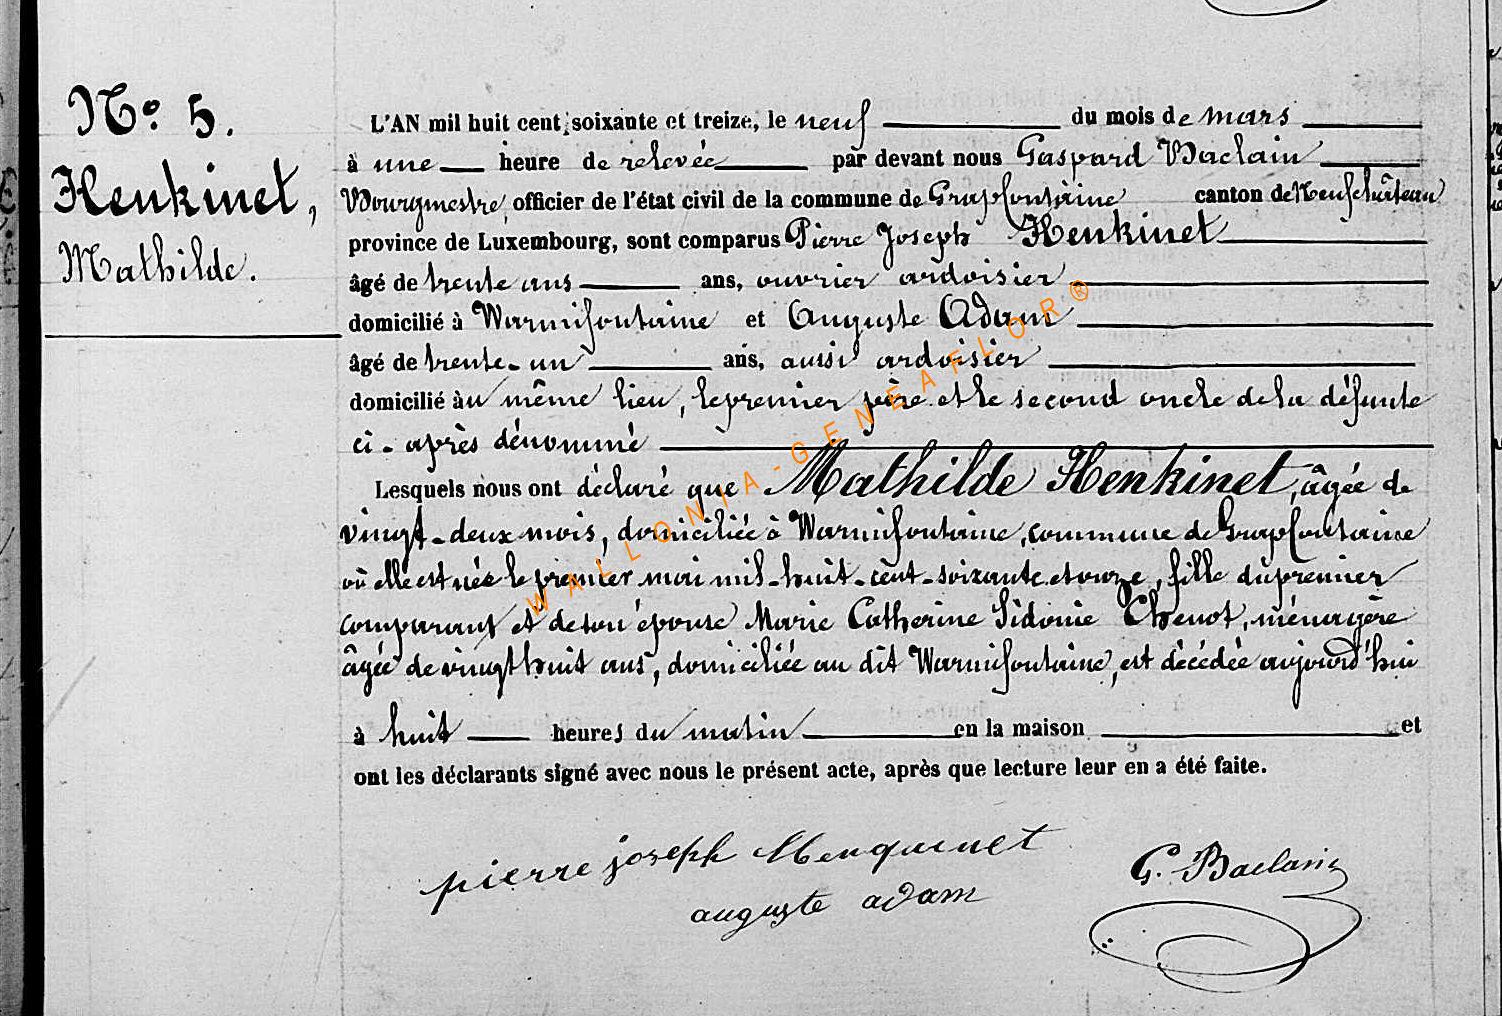 N° 5.
Henkinet,
Mathilde.
L'AN mil huit cent soixante et treize, le neuf du mois de mars
à une heure de relevée par devant nous Gaspard Baclain
Bourgmestre, officier de l'état civil de la commune de Grapfontaine canton de Neufchâteau
province de Luxembourg, sont comparus Pierre Joseph Henkinet
âgé de trente ans ans, ouvrier ardoisier
domicilié à Warmifontaine et Auguste Adam
âgé de trente-un ans, aussi ardoisier
domicilié au même lieu, le premier père et le second oncle de la défunte
ci-après dénommé
Lesquels nous ont déclaré que Mathilde Henkinet, âgée de
vingt-deux mois, domiciliée à Warmifontaine, commune de Grapfontaine
où elle est née le premier mai mil-huit-cent-soixante et onze, fille du premier
comparant et de son épouse Marie Catherine Sidonie Thenot, ménagère
âgée de vingt huit ans, domiciliée au dit Warmifontaine, est décédée aujourd'hui
à huit heures du matin en la maison et
ont les déclarants signé avec nous le présent acte, après que lecture leur en a été faite.
pierre joseph Henquinet
auguste adam
G. Baclain
WALLONIA-GENEAFLOR®